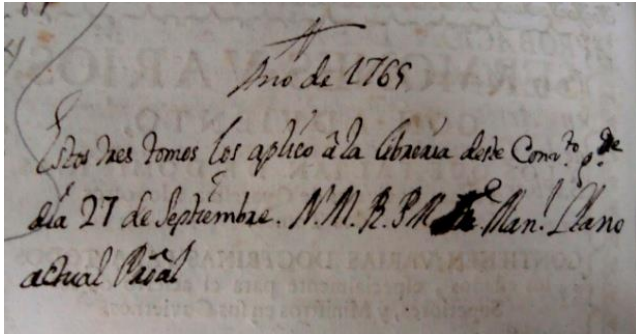 Año de 1765
Estos tres tomos los aplicó à la libreria deste Conv.to
dia 27 de Septiembre. N. M. R. P. M. Man.l Llano
actual